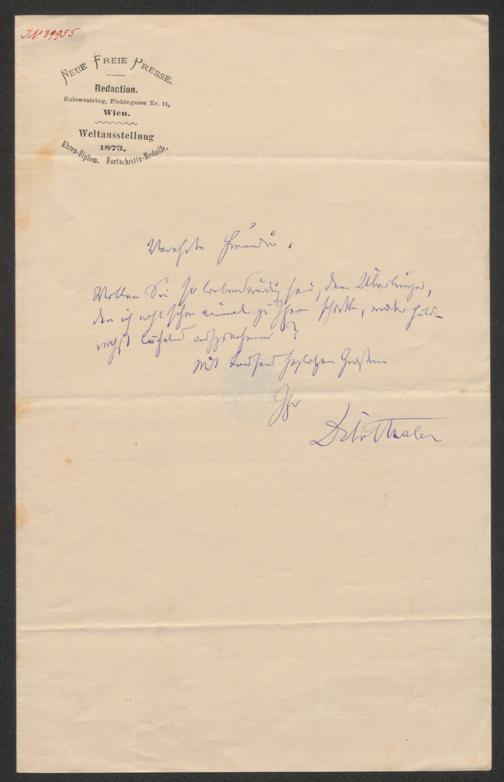 JN 39955
NEUE FREIE PRESSE.
Redaction.
Kolowratring, Fichtegasse Nr. 11,
Wien.
Weltausstellung
1873.
Ehren-Diplom. Fortschritts-Medaille.
Verehrte Freundin.
Wollen Sie so liebenswürdig sein, dem Überbringer,
den ich wohl schon einmal zu Ihnen schickte, wieder
aufzunehmen?
Mit tausend herzlichen Grüßen
Ihr